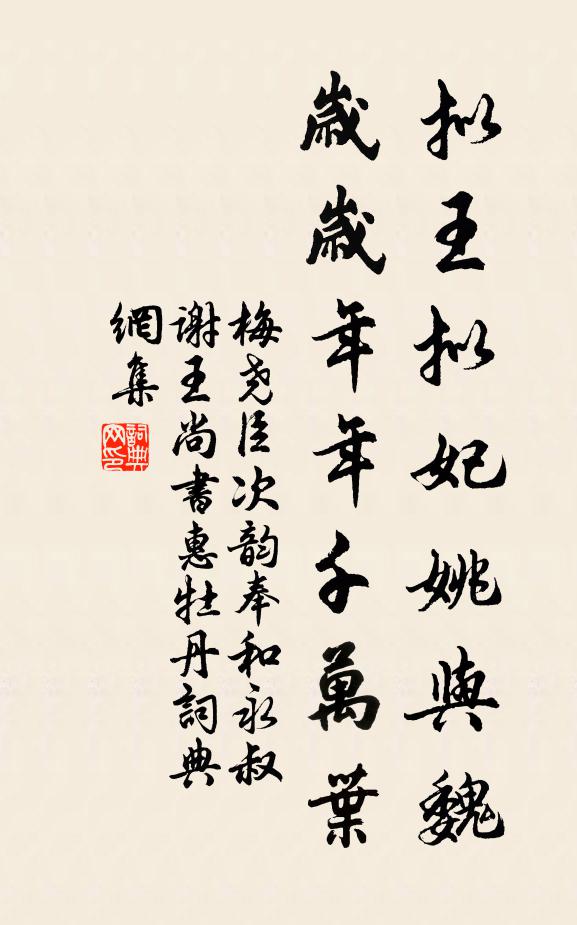 拟王拟妃姚與魏
歲歲年年千萬葉
梅尧臣次韵奉和永叔
谢王尚書惠牡丹詞典
網集
詞典
网印